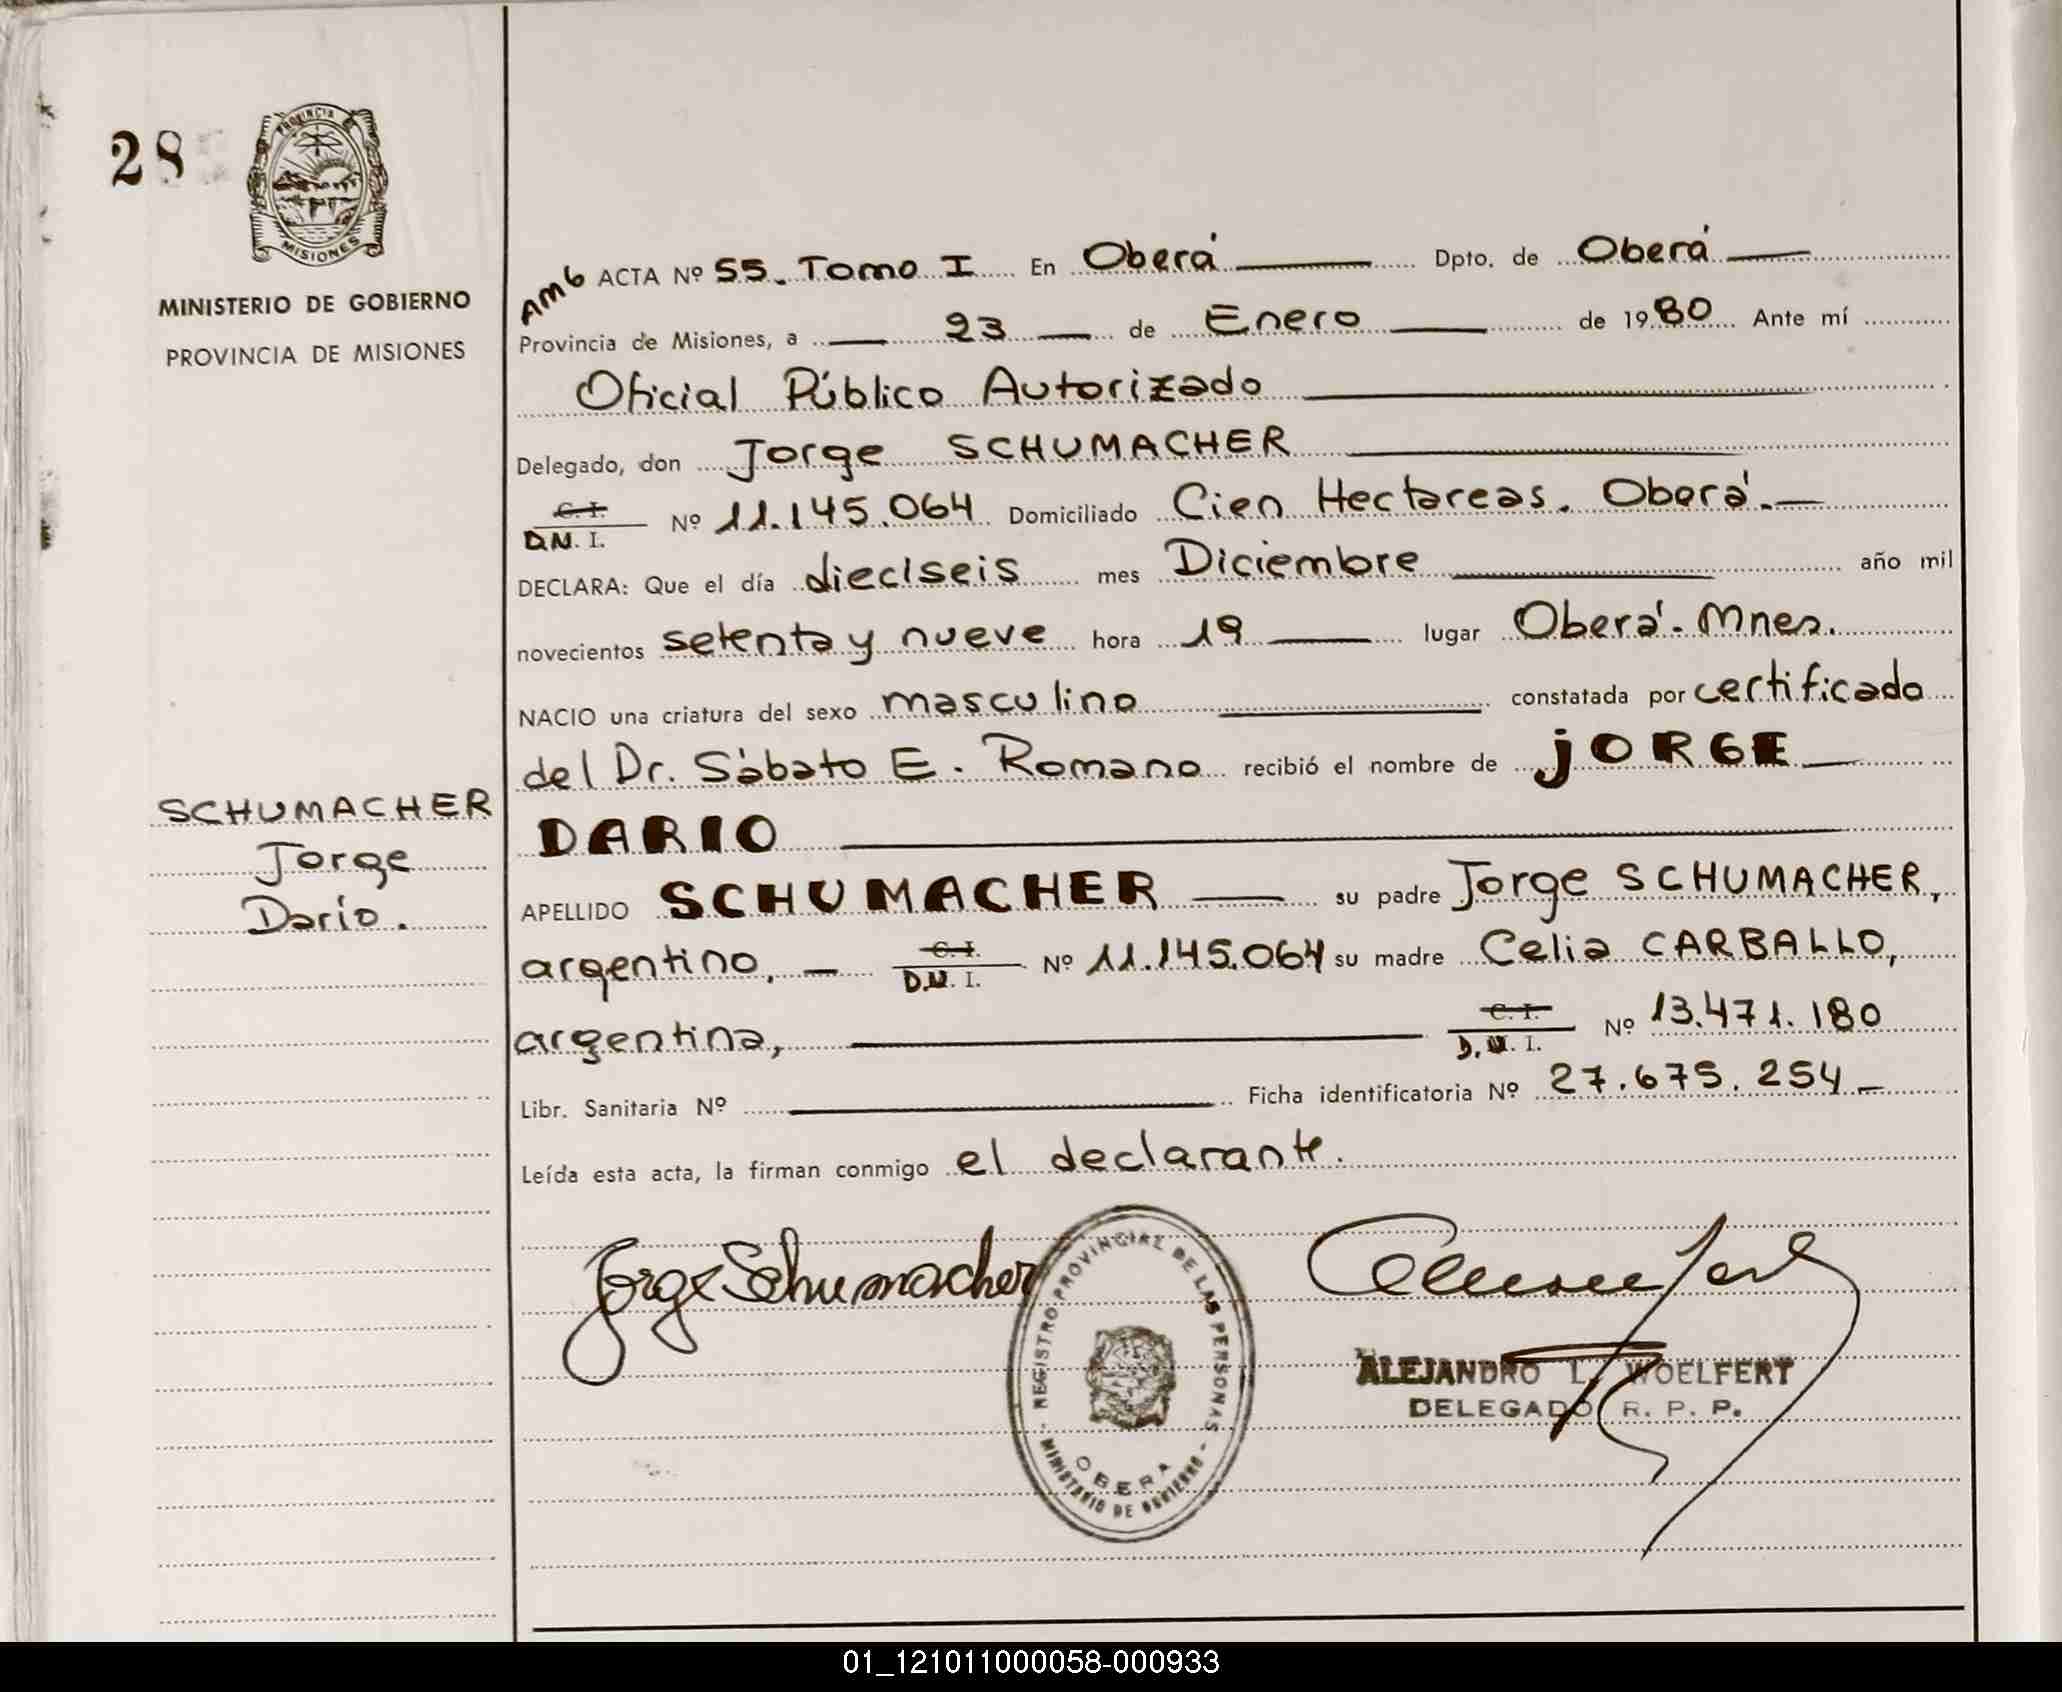 28
PROVINCIA DE
MISIONES
MINISTERIO DE GOBIERNO
PROVINCIA DE MISIONES
SCHUMACHER
Jorge
Darío.
AMG ACTA Nº 55. Tomo I En Oberá Dpto. de Oberá
Provincia de Misiones, a 23 de Enero de 1980 Ante mí
Oficial Público Autorizado
Delegado, don Jorge SCHUMACHER
C. I.
D.N. I. Nº 11.145.064 Domiciliado Cien Hectareas. Oberá.
DECLARA: Que el día dieciseis mes Diciembre año mil
novecientos setenta y nueve hora 19 lugar Oberá. Mnes.
NACIO una criatura del sexo masculino constatada por certificado
del Dr. Sábato E. Romano recibió el nombre de JORGE
DARIO
APELLIDO SCHUMACHER su padre Jorge SCHUMACHER,
argentino, C. I.
D.N. I. Nº 11.145.064 su madre Celia CARBALLO,
argentina, C. I.
D.N. I. Nº 13.471.180
Libr. Sanitaria Nº Ficha identificatoria Nº 27.675.254
Leída esta acta, la firman conmigo el declarante.
Jorge Schumacher
REGISTRO PROVINCIAL DE LAS PERSONAS
OBERA
MINISTERIO DE GOBIERNO
ALEJANDRO L. WOELFERT
DELEGADO R. P. P.
01_121011000058-000933